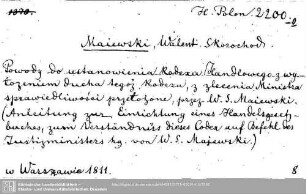 1373.
H. Polon 2200-2
Majewski, Walent. Skorochod.
Powody do ustanowienia Kodexu Handlowego z wy-
łożeniem ducha tegoż Kodexu, z zlecenia Ministra
sprawiedliwości przełożone, przez W. S. Majewski.
(Anleitung zur Einrichtung eines Handelsgesetz-
buches, zum Verständniss dieses Codex auf Befehl des
Justizministers hg. von W. S. Majewski.)
w Warszawie 1811.
8